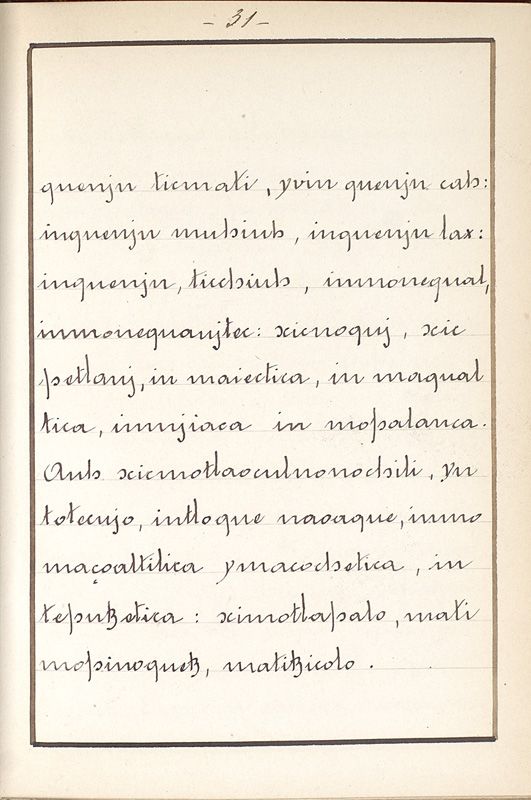 - 31 -
quenjn ticmati, yvin quenjn cah:
inquenjn muhiuh, inquenjn lax:
inquenjn, ticchiuh, inmonequal,
inmonequanjtec: xicnoquj, xic
petlanj, in maiectica, in maqual
tica, inmjiaca in mopalanca.
Auh xicmotlaoculnonochili, yn
totecujo, intloque naoaque, inmo
maçoaltilica ymacochetica, in
teputzetica: ximotlapalo, mati
mopinoquetz, matitzicolo.